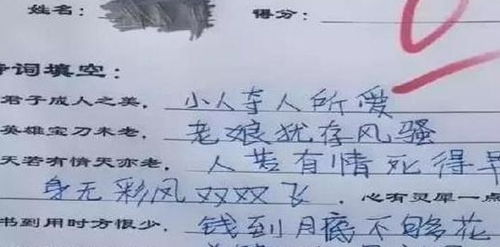 姓名： 得分：
诗词填空：
君子成人之美，小人夺人所爱
英雄宝刀未老，老娘犹存风骚
天若有情天亦老，人若有情死得早
身无彩凤双双飞，心有灵犀一点
书到用时方恨少，钱到月底不够花